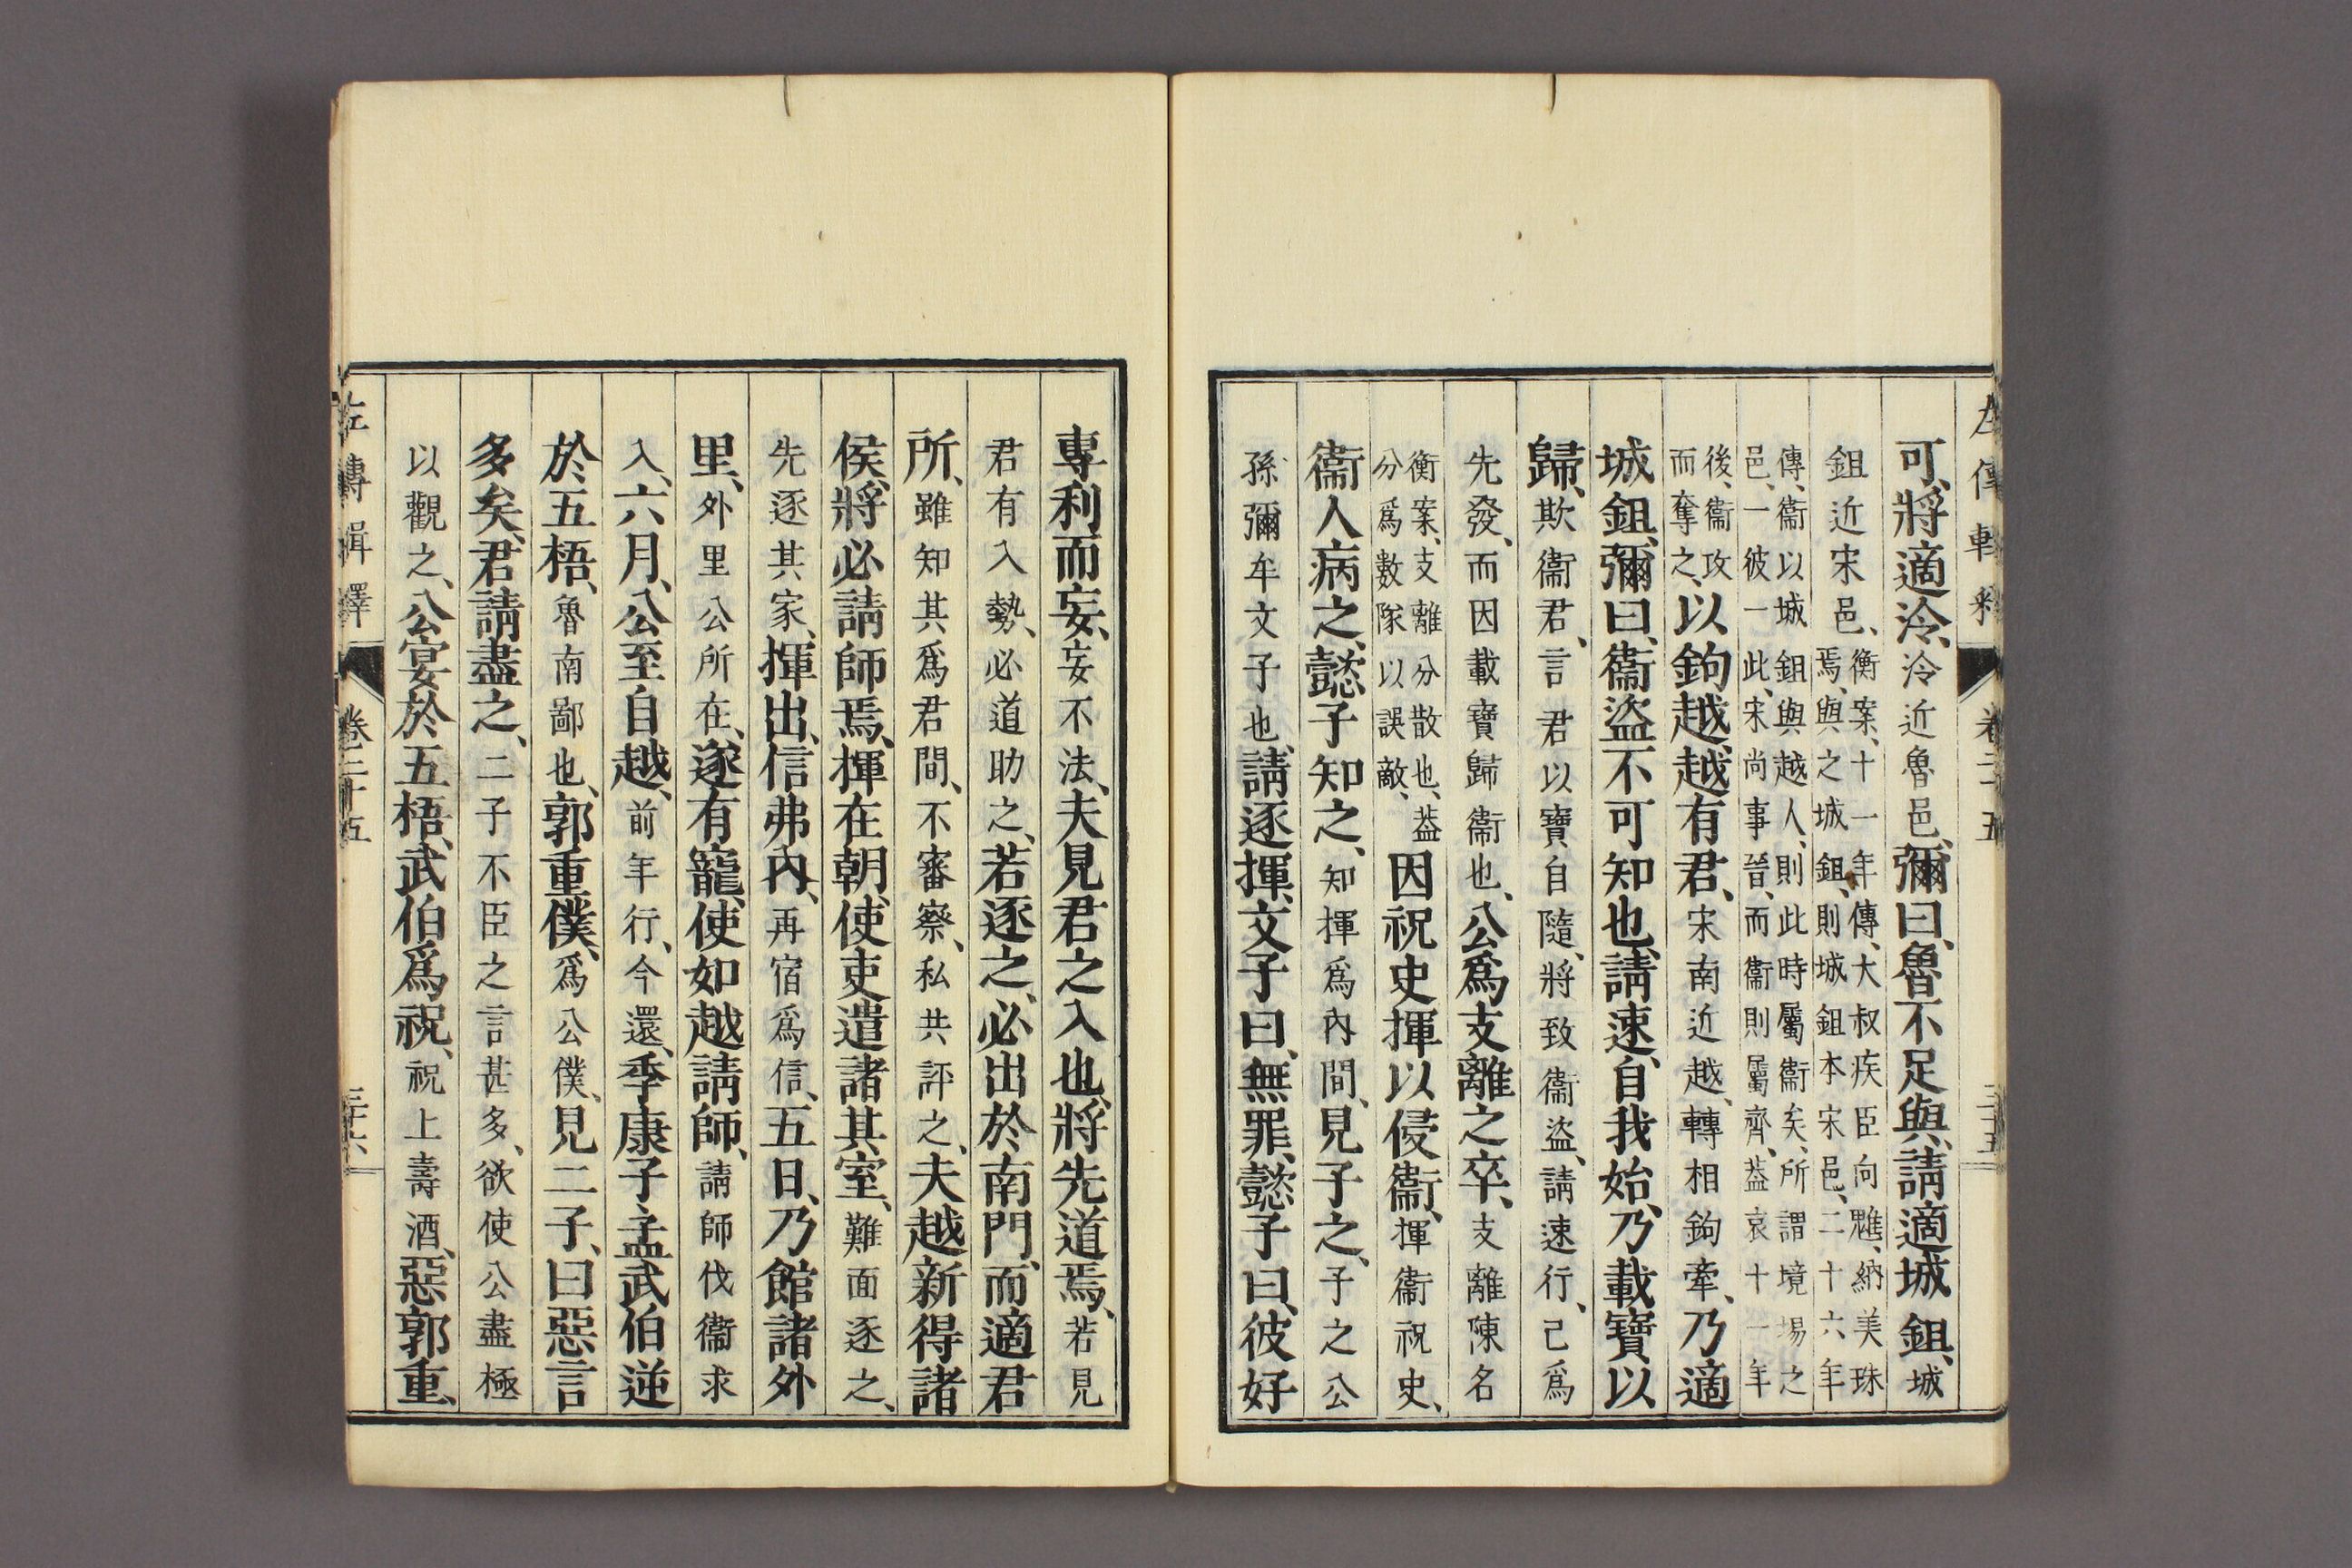 可、將適泠、泠近魯邑、彌曰、魯不足與、請適城鉏、城
鉏近宋邑、衡案、十一年傳、大叔疾臣向魋、納美珠
焉、與之城鉏、則城鉏本宋邑、二十六年
傳、衞以城鉏與越人、則此時屬衞矣、所謂境埸之
邑、一彼一此、宋尚事晉、而衞則屬齊、葢哀十一年
後、衞攻
而奪之、以鉤越、越有君、宋南近越、轉相鉤牽、乃適
城鉏、彌曰、衞盜不可知也、請速、自我始、乃載寶以
歸、欺衞君、言君以寶自隨、將致衞盜、請速行、己爲
先發、而因載寶歸衞也、公爲支離之卒、支離陳名
衡案、支離分散也、葢
分爲數隊以誤敵、因祝史揮以侵衞、揮衞祝史、
衞人病之、懿子知之、知揮爲內間、見子之、子之公
孫彌牟文子也、請逐揮、文子曰、無罪、懿子曰、彼好
專利而妄、妄不法、夫見君之入也、將先道焉、若見
君有入勢、必道助之、若逐之、必出於南門、而適君
所、雖知其爲君間、不審察、私共評之、夫越新得諸
侯、將必請師焉、揮在朝、使吏遣諸其室、難面逐之、
先逐其家、揮出、信弗內、再宿爲信、五日、乃館諸外
里、外里公所在、遂有寵、使如越請師、請師伐衞求
入、六月、公至自越、前年行、今還、季康子、孟武伯逆
於五梧、魯南鄙也、郭重僕、爲公僕、見二子、曰惡言
多矣、君請盡之、二子不臣之言甚多、欲使公盡極
以觀之、公宴於五梧、武伯爲祝、祝上壽酒、惡郭重、
左傳輯釋 卷二十五 三十六